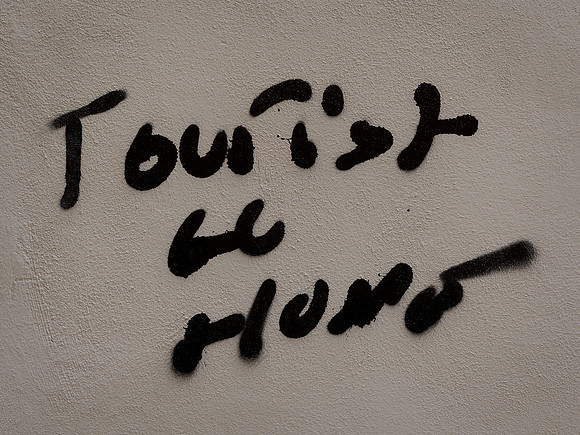 Tourist
Go
Home